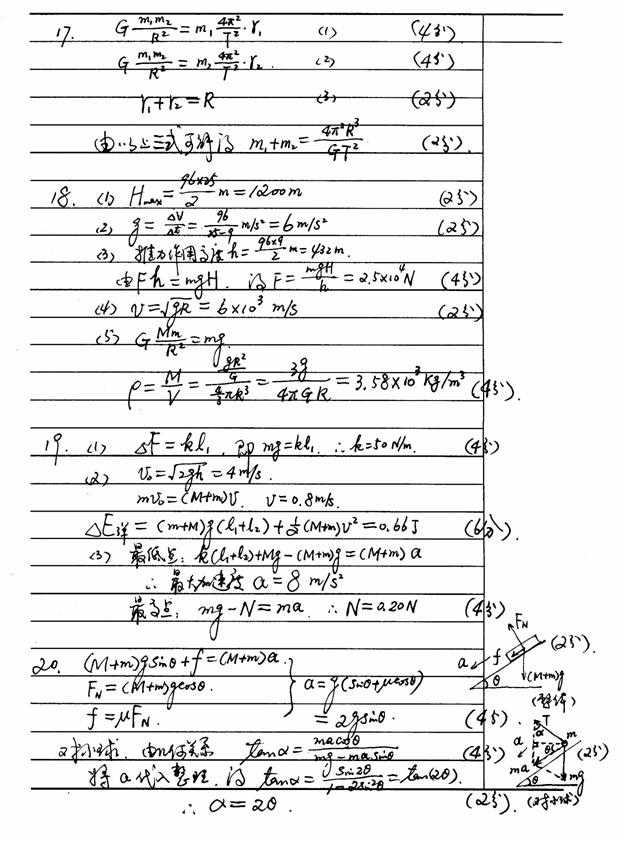 17. G m₁m₂/R² = m₁ 4π²/T² · r₁ (1) (4分)
G m₁m₂/R² = m₂ 4π²/T² · r₂. (2) (4分)
r₁+r₂ = R (3) (2分)
由以上三式可解得 m₁+m₂ = 4π²R³/GT² (2分).
18. (1) Hmax = 96×25/2 m = 1200m (2分)
(2) g = ΔV/Δt = 96/25-9 m/s² = 6 m/s² (2分)
(3) 推力作用高度 h = 96×9/2 m = 432m.
由Fh = mgH. 得 F = mgH/h = 2.5×10⁴N (4分)
(4) v = √gR = 6×10³ m/s (2分)
(5) G Mm/R² = mg
ρ = M/V = (gR²/G)/(4/3 πR³) = 3g/4πGR = 3.58×10³ kg/m³ (4分).
19. (1) ΔF = kl₁, 即 mg = kl₁ ∴ k=50N/m. (4分)
(2) v₀ = √2gh = 4m/s.
mv₀ = (M+m)v. v = 0.8m/s.
ΔE弹 = (m+M)g(l₁+l₂) + ½(M+m)v² = 0.66J (6分)
(3) 最低点: k(l₁+l₂)+Mg-(M+m)g = (M+m)a
∴ 最大加速度 a = 8 m/s²
最高点: mg-N = ma. ∴ N = 0.20N (4分)
20. (M+m)gsinθ+f = (M+m)a.
F_N = (M+m)gcosθ. } a = g(sinθ+μcosθ)
f = μF_N. = 2gsinθ. (4分).
F_N
a f (2分).
θ (M+m)g
(整体)
对小球, 由几何关系 tanα = macosθ/mg-masinθ (4分)
将a代入整理, 得 tanα = sin2θ/1-2sin²θ = tan(2θ).
∴ α = 2θ. (2分).
T
α m
a θ (2分)
ma mg
θ
(对小球)